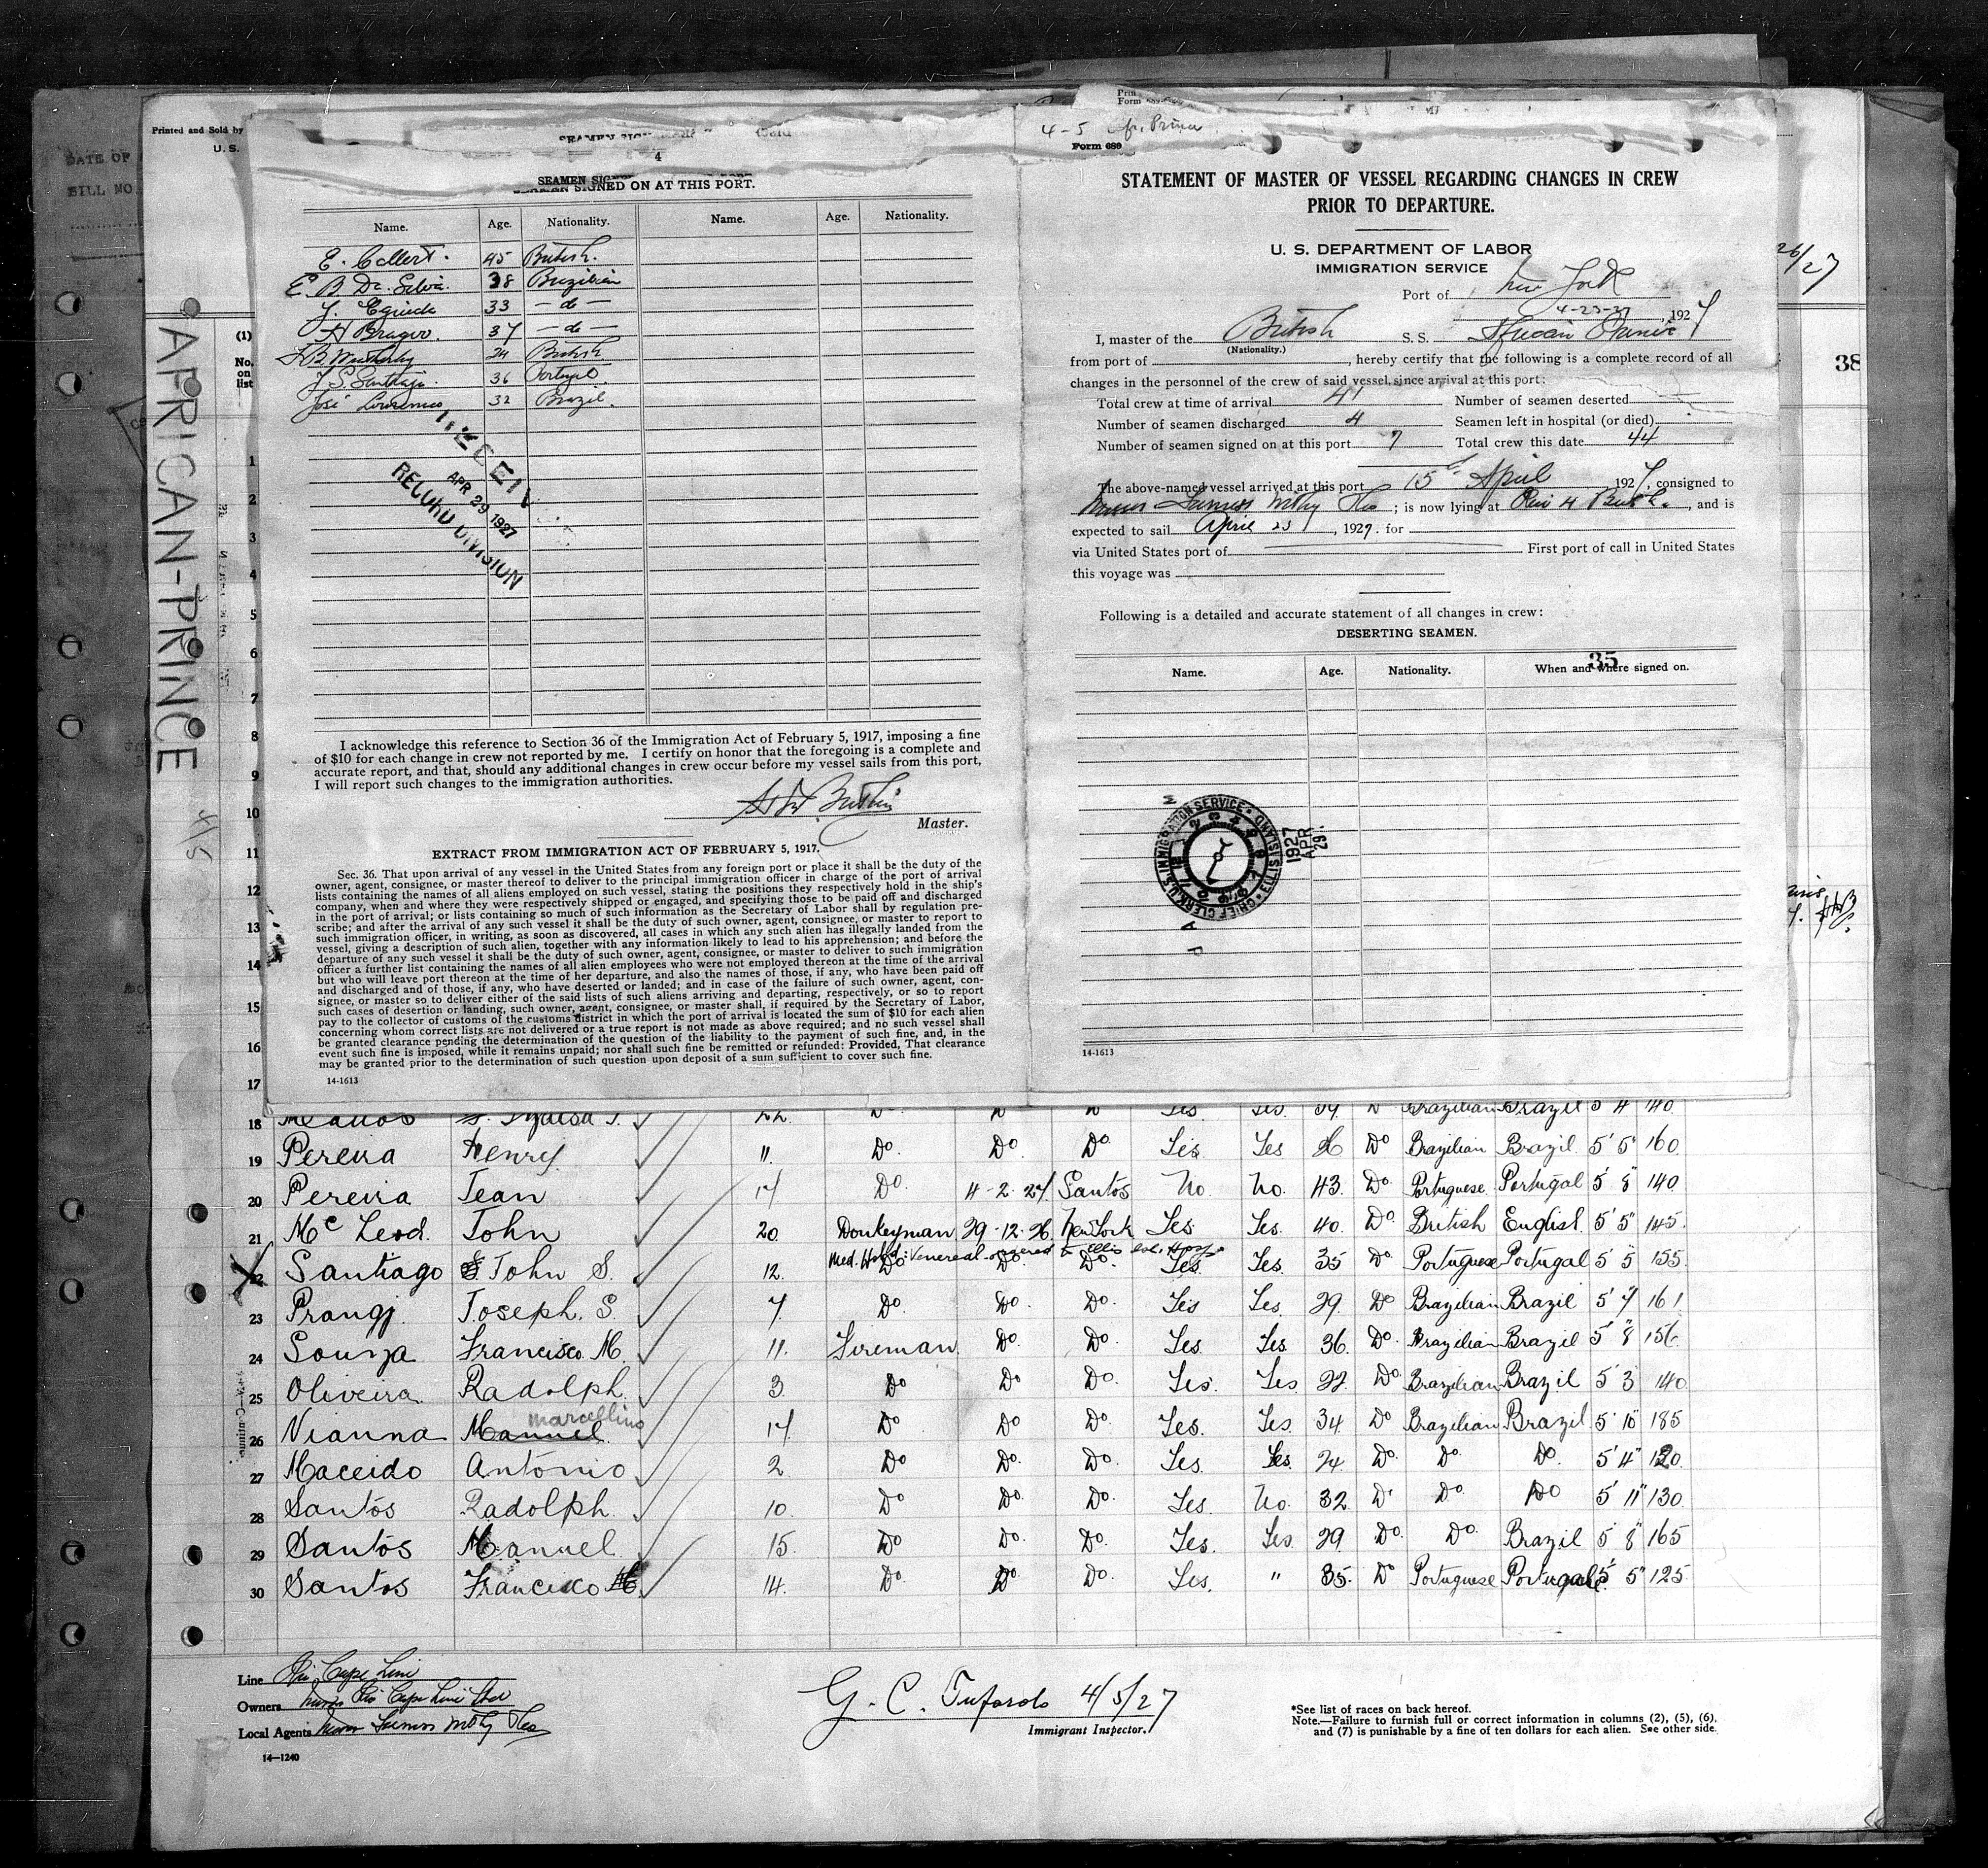 Printed and Sold by
U. S.
DATE OF
BILL NO.
AFRICAN-PRINCE
4/5
(1)
No.
on
list
4
SEAMEN SIGNED ON AT THIS PORT.
Name. Age. Nationality. Name. Age. Nationality.
E. Collert. 45 British.
E. B. Da Silva. 38 Brazilian
J. Egueda 33 — do —
H Brager. 37 — do —
24 British.
J. S. Santiago. 36 Portugal.
José Lourenco 32 Brazil.
RECEIV
APR 29 1927
RECORD DIVISION
I acknowledge this reference to Section 36 of the Immigration Act of February 5, 1917, imposing a fine
of $10 for each change in crew not reported by me. I certify on honor that the foregoing is a complete and
accurate report, and that, should any additional changes in crew occur before my vessel sails from this port,
I will report such changes to the immigration authorities.
Master.
EXTRACT FROM IMMIGRATION ACT OF FEBRUARY 5, 1917.
Sec. 36. That upon arrival of any vessel in the United States from any foreign port or place it shall be the duty of the
owner, agent, consignee, or master thereof to deliver to the principal immigration officer in charge of the port of arrival
lists containing the names of all aliens employed on such vessel, stating the positions they respectively hold in the ship's
company, when and where they were respectively shipped or engaged, and specifying those to be paid off and discharged
in the port of arrival; or lists containing so much of such information as the Secretary of Labor shall by regulation pre-
scribe; and after the arrival of any such vessel it shall be the duty of such owner, agent, consignee, or master to report to
such immigration officer, in writing, as soon as discovered, all cases in which any such alien has illegally landed from the
vessel, giving a description of such alien, together with any information likely to lead to his apprehension; and before the
departure of any such vessel it shall be the duty of such owner, agent, consignee, or master to deliver to such immigration
officer a further list containing the names of all alien employees who were not employed thereon at the time of the arrival
but who will leave port thereon at the time of her departure, and also the names of those, if any, who have been paid off
and discharged and of those, if any, who have deserted or landed; and in case of the failure of such owner, agent, con-
signee, or master so to deliver either of the said lists of such aliens arriving and departing, respectively, or so to report
such cases of desertion or landing, such owner, agent, consignee, or master shall, if required by the Secretary of Labor,
pay to the collector of customs of the customs district in which the port of arrival is located the sum of $10 for each alien
concerning whom correct lists are not delivered or a true report is not made as above required; and no such vessel shall
be granted clearance pending the determination of the question of the liability to the payment of such fine, and, in the
event such fine is imposed, while it remains unpaid; nor shall such fine be remitted or refunded: Provided, That clearance
may be granted prior to the determination of such question upon deposit of a sum sufficient to cover such fine.
14-1613
4-5 Af. Prince
Form 689
STATEMENT OF MASTER OF VESSEL REGARDING CHANGES IN CREW
PRIOR TO DEPARTURE.
U. S. DEPARTMENT OF LABOR
IMMIGRATION SERVICE
Port of New York
4-23-27, 1927
I, master of the British S. S. African Prince
(Nationality.)
from port of , hereby certify that the following is a complete record of all
changes in the personnel of the crew of said vessel since arrival at this port:
Total crew at time of arrival 41 Number of seamen deserted
Number of seamen discharged 4 Seamen left in hospital (or died)
Number of seamen signed on at this port 7 Total crew this date 44
The above-named vessel arrived at this port 15th April 1927, consigned to
; is now lying at Pier 4 Bush., and is
expected to sail April 23, 1927. for
via United States port of First port of call in United States
this voyage was
Following is a detailed and accurate statement of all changes in crew:
DESERTING SEAMEN.
35
Name. Age. Nationality. When and where signed on.
U.S. IMMIGRATION SERVICE
CHIEF CLERK
ELLIS ISLAND
1927
APR
29
14-1613
26/27
38
1
2
3
4
5
6
7
8
9
10
11
12
13
14
15
16
17
18 22 Do Do Do Yes Yes. 34 Do Brazilian Brazil 5' 4" 140
19 Pereira Henry. 11. Do. Do. Do. Yes. Yes Do Brazilian Brazil. 5' 5" 160
20 Pereira Jean 14 Do. 4-2-27. Santos No. No. 43. Do Portuguese Portugal 5' 8" 140
21 Mc Leod. John 20. Donkeyman 29-12-26. New York Yes Yes. 40. Do. British English. 5' 5" 145.
Med. Hold: Venereal-ordered to Ellis Isl. Hosp.
22 Santiago John S. 12. Do Do. Do. Yes Yes. 35 Do Portuguese Portugal 5' 5" 155
23 Prangj Joseph. S. 7. Do. Do. Do. Yes Yes. 29. Do Brazilian Brazil 5' 7" 161
24 Souza Francisco M. 11. Fireman Do. Do. Yes. Yes. 36. Do. Brazilian Brazil 5' 8" 156
25 Oliveira Radolph. 3. Do Do Do. Yes. Yes 22. Do. Brazilian Brazil 5' 3" 140
26 Vianna Manuel marcellino 14 Do Do Do. Yes. Yes. 34 Do Brazilian Brazil. 5' 10" 185
27 Maceido Antonio 2 Do Do. Do. Yes. Yes. 24. Do. Do. Do. 5' 4" 120.
28 Santos Radolph 10. Do Do. Do. Yes. No. 32. Do Do Do 5' 11" 130.
29 Santos Manuel 15. Do Do. Do. Yes. Yes. 29. Do. Do. Brazil 5' 8" 165
30 Santos Francisco M. 14. Do. Do Do. Yes. " 35. Do Portuguese Portugal 5' 5" 125
Line Rio Cape Line
Owners Messrs Rio Cape Line Ltd
Local Agents
14—1240
G. C. Tufarolo 4/5/27
Immigrant Inspector.
*See list of races on back hereof.
Note.—Failure to furnish full or correct information in columns (2), (5), (6),
and (7) is punishable by a fine of ten dollars for each alien. See other side.